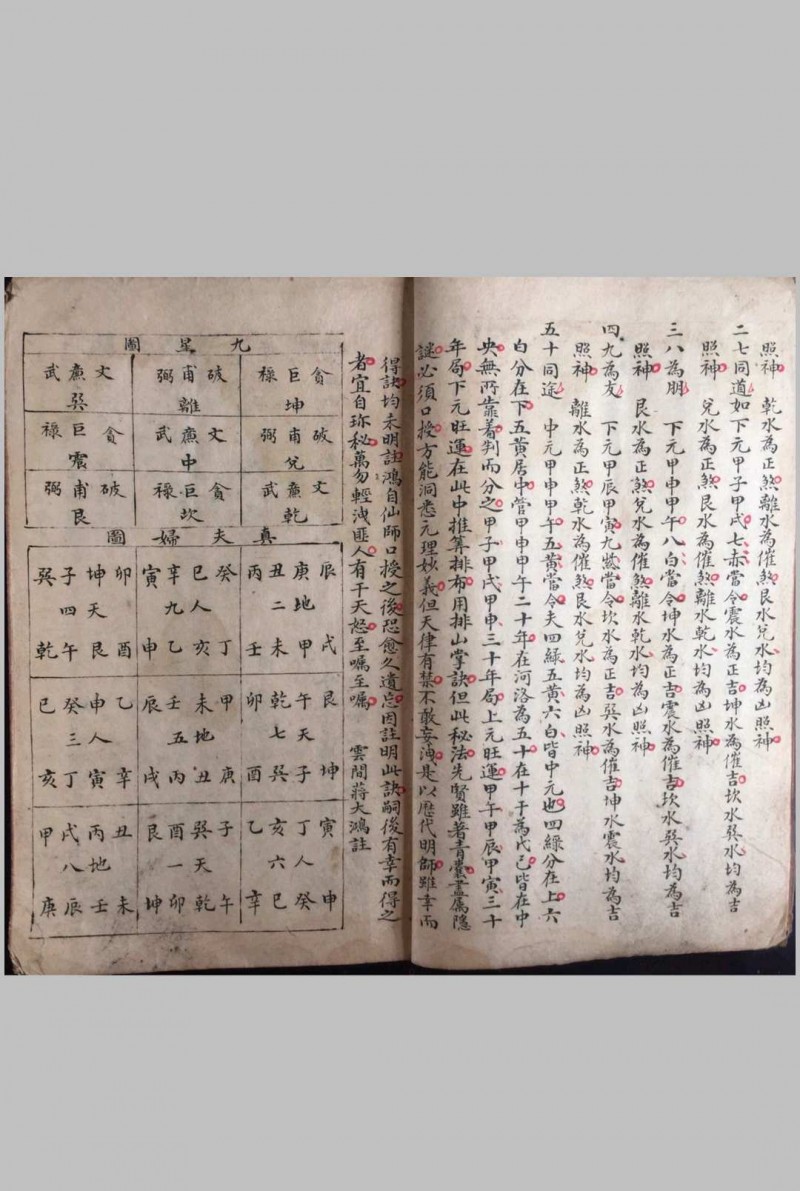 照神　乾水為正煞離水為催煞艮水兌水均為凶照神
二七同道如下元甲子甲戌七赤當令震水為正吉坤水為催吉坎水巽水均為吉
照神　兌水為正煞艮水為催煞離水乾水均為凶照神
三八為朋　下元甲申甲午八白當令坤水為正吉震水為催吉坎水巽水均為吉
照神　艮水為正煞兌水為催煞離水乾水均為凶照神
四九為友　下元甲辰甲寅九紫當令坎水為正吉巽水為催吉坤水震水均為吉
照神　離水為正煞乾水為催煞艮水兌水均為凶照神
五十同途　中元甲申甲午五黃當令夫四綠五黃六白皆中元也四綠分在上六
白分在下五黃居中管甲申甲午二十年在河洛為五十在十干為戊己皆在中
央無所靠着判而分之甲子甲戌甲申三十年局上元旺運甲午甲辰甲寅三十
年局下元旺運在此中推算排布用排山掌訣但此秘法先賢雖著青囊盡屬隱
謎必須口授方能洞悉元理妙義但天律有禁不敢妄洩是以歷代明師雖幸而
得訣均未明註鴻自仙師口授之後恐愈久遺忘因註明此訣嗣後有幸而得之
者宜自珎秘萬勿輕洩匪人有干天怒至囑至囑　雲間蔣大鴻註
九星圖
貪巨祿　破甫弼　文亷武
坤　離　巽
破甫弼　文亷武　貪巨祿
兌　中　震
文亷武　貪巨祿　破甫弼
乾　坎　艮
真夫婦圖
辰庚丑丙　癸巳辛寅　卯坤子巽
地二　人九　天四
戌甲未壬　丁亥乙申　酉艮午乾
艮午乾卯　甲未壬辰　乙申癸巳
天七　地五　人三
坤子巽酉　庚丑丙戌　辛寅丁亥
寅丁亥乙　子巽酉艮　丑丙戌甲
人六　天一　地八
申癸巳辛　午乾卯坤　未壬辰庚